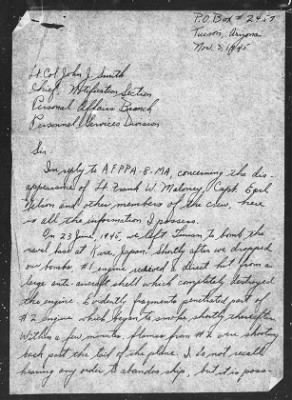 P.O. Box # 2427
Tucson, Arizona
Nov. 8, 1945
Lt. Col. John J. Smith
Chief, Notification Section
Personal Affairs Branch
Personnel Services Division
Sir:
In reply to AFPPA-8-MA, concerning the dis-
appearance of Lt. Frank W. Maloney, Capt. Earl
Wilson and other members of the crew, here
is all the information I possess.
On 23 June, 1945, we left Tinian to bomb the
naval base at Kure, Japan. Shortly after we dropped
our bombs #1 engine received a direct hit from a
large anti-aircraft shell which completely destroyed
the engine. Evidently fragments penetrated part of
#2 engine which began to smoke shortly thereafter.
Within a few minutes, flames from #2 were shooting
back past the tail of the plane. I do not recall
hearing any order to abandon ship, but it is poss-